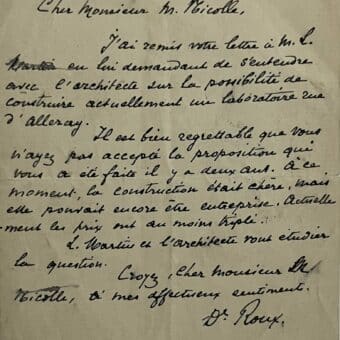 Cher Monsieur M. Nicolle,
J'ai remis votre lettre à M. L.
Martin en lui demandant de s'entendre
avec l'architecte sur la possibilité de
construire actuellement un laboratoire rue
d'Alleray.
Il est bien regrettable que vous
n'ayez pas accepté la proposition qui
vous a été faite il y a deux ans. À ce
moment, la construction était chère, mais
elle pouvait encore être entreprise. Actuelle-
ment les prix ont au moins triplé.
L. Martin et l'architecte vont étudier
la question.
Croyez, Cher Monsieur
Nicolle, à mes affectueux sentiments.
Dr Roux.